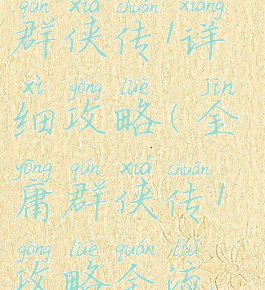 qún xiá chuán xiáng
群侠传1详
xì gōng lüè jīn
细攻略(金
yōng qún xiá chuán
庸群侠传1
gōng lüè quán liú
攻略全流